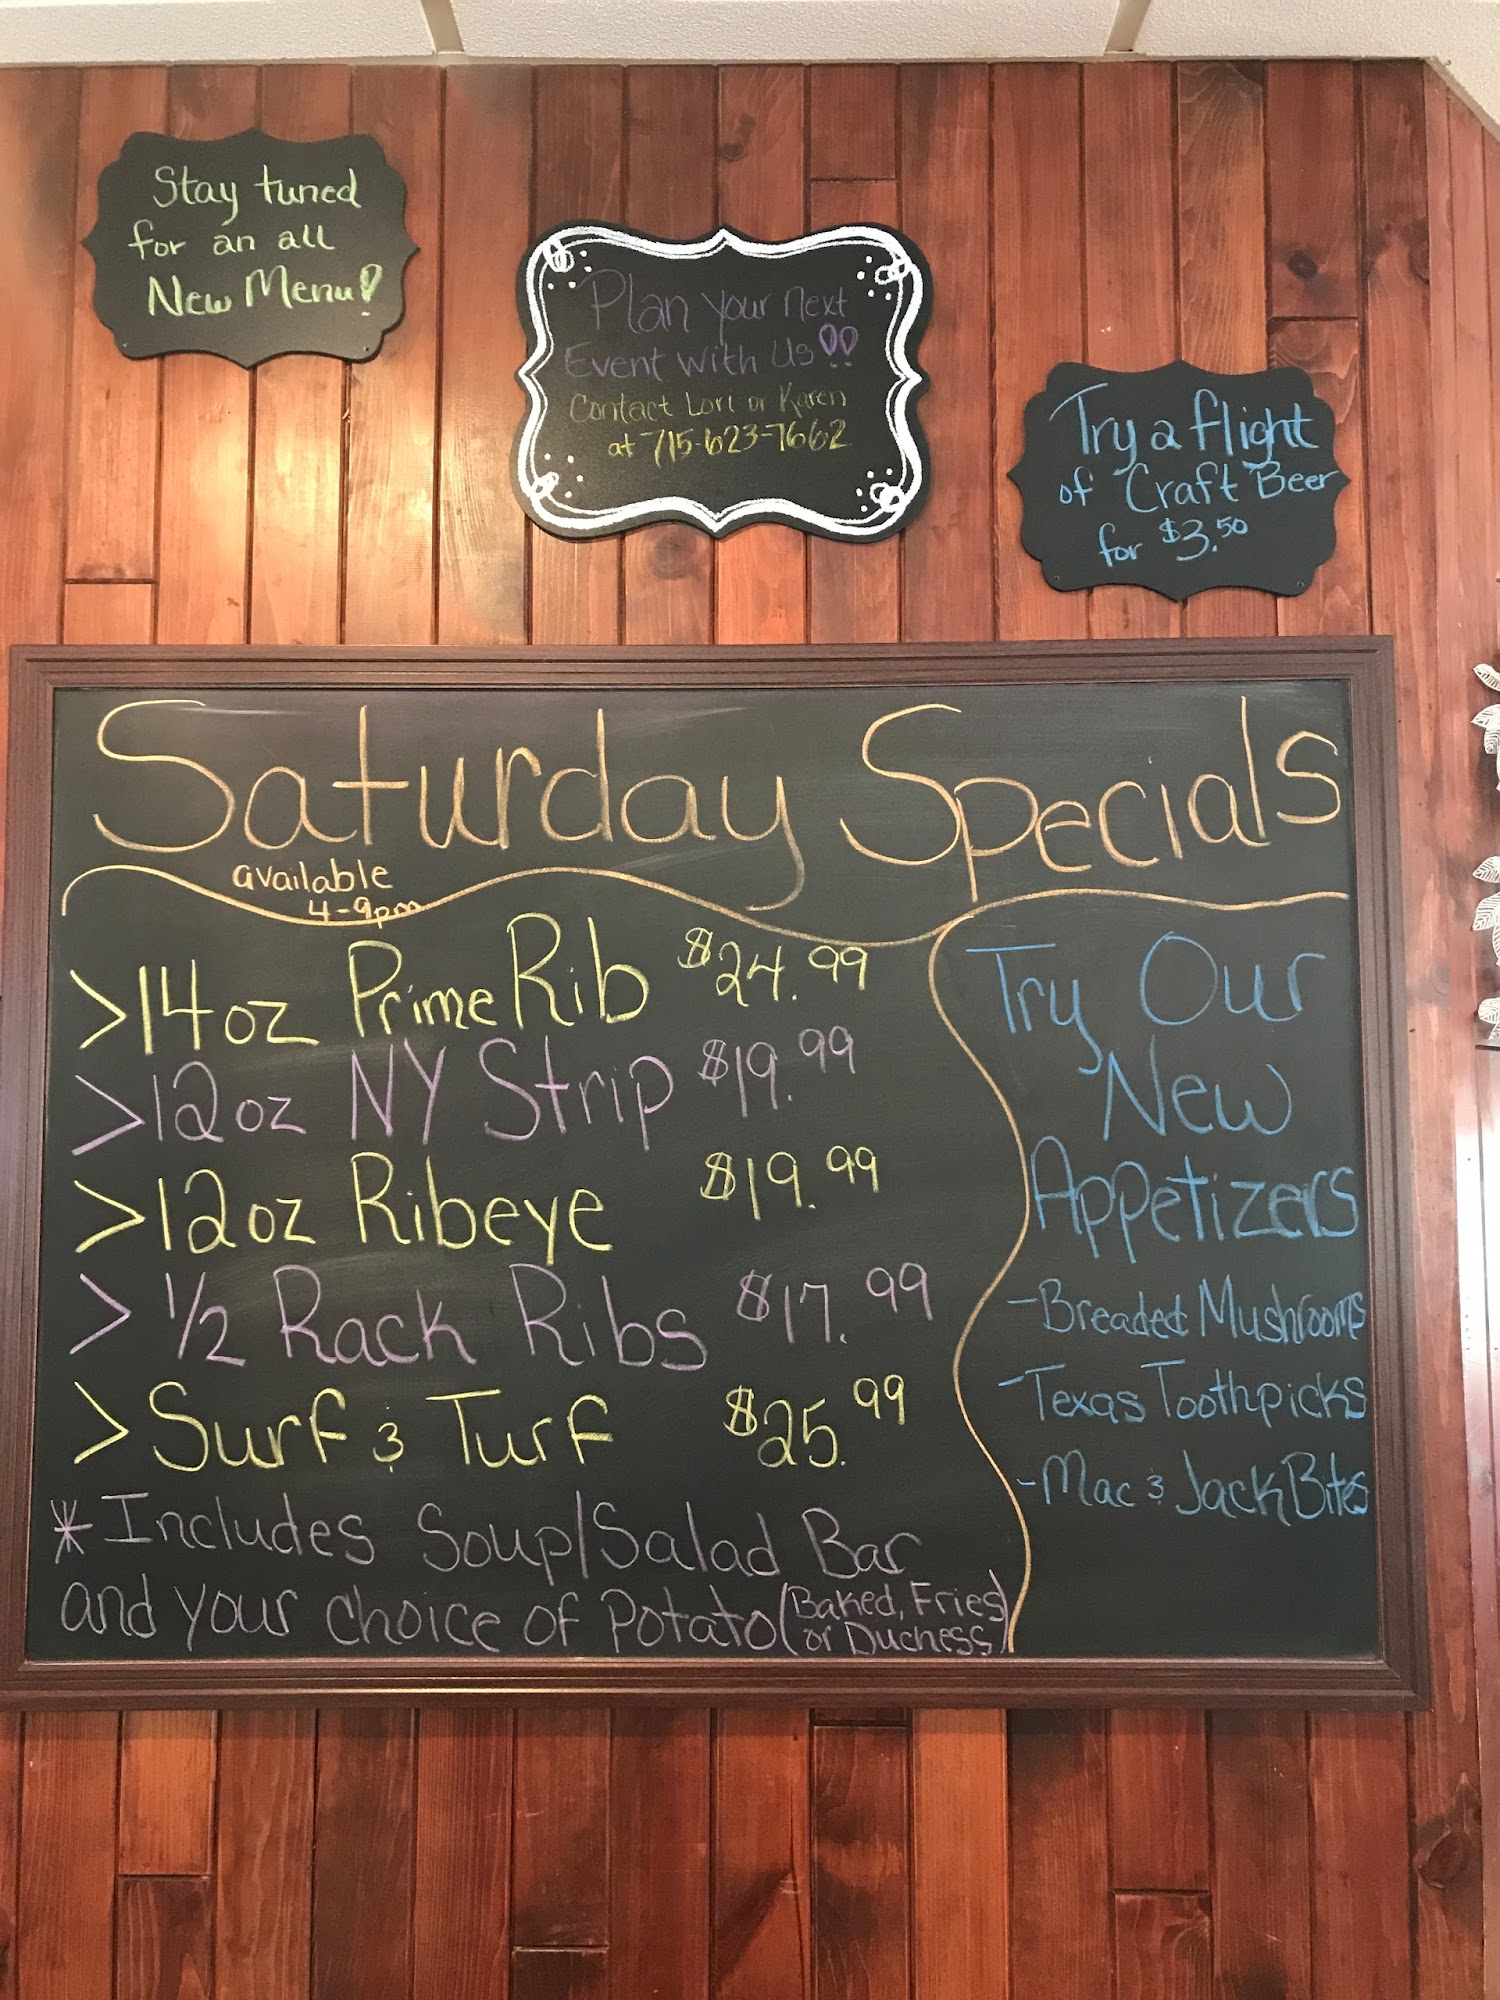 Stay tuned
for an all
New Menu!
Plan your next
Event with Us!!
Contact Lori or Karen
at 715-623-7662
Try a flight
of Craft Beer
for $3.50
Saturday Specials
available
4-9pm
>14oz Prime Rib $24.99
>12oz NY Strip $19.99
>12oz Ribeye $19.99
> 1/2 Rack Ribs $17.99
> Surf & Turf $25.99
* Includes Soup/Salad Bar
and your choice of Potato (Baked, Fries
or Duchess)
Try Our
New
Appetizers
- Breaded Mushrooms
- Texas Toothpicks
- Mac & Jack Bites